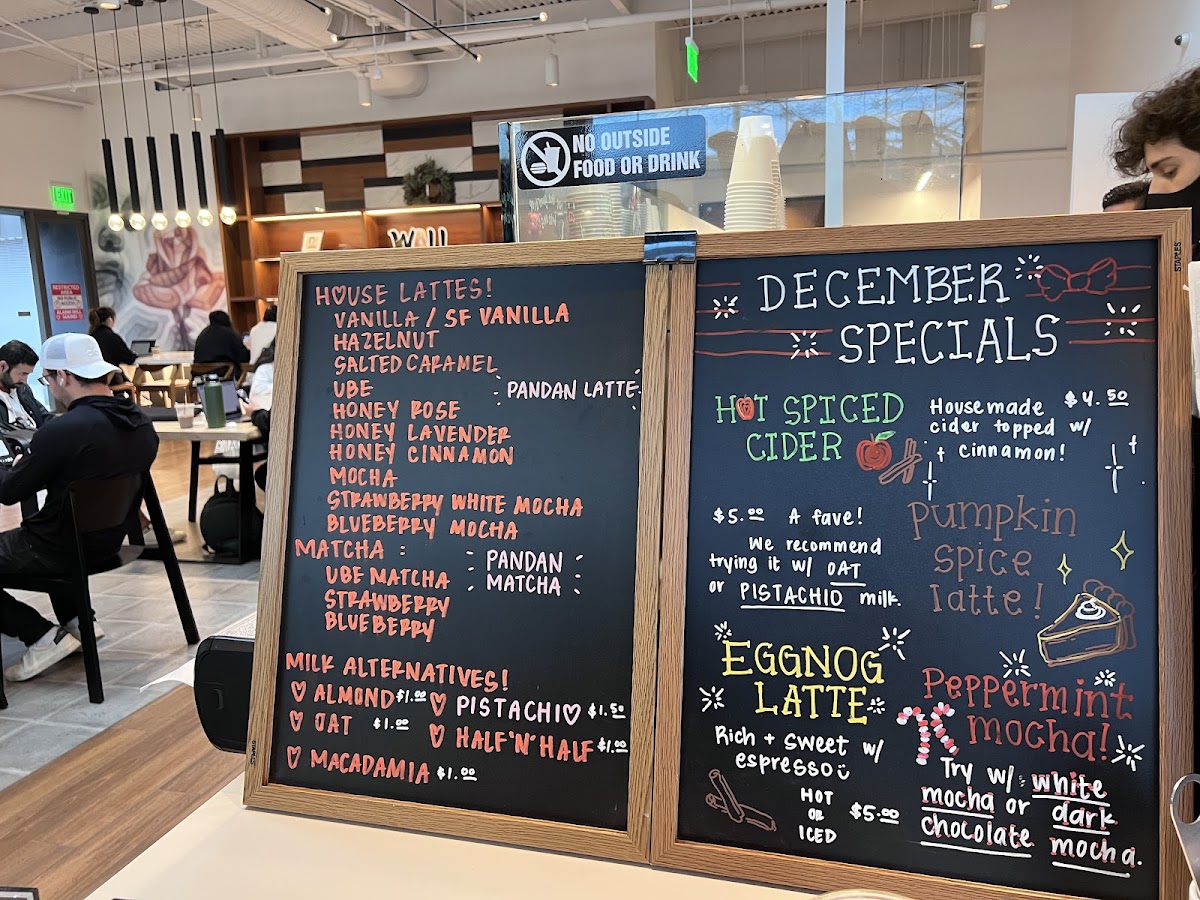 NO OUTSIDE
FOOD OR DRINK
EXIT
RESTRICTED
AREA
HOUSE LATTES!
VANILLA / SF VANILLA
HAZELNUT
SALTED CARAMEL
UBE
PANDAN LATTE
HONEY ROSE
HONEY LAVENDER
HONEY CINNAMON
MOCHA
STRAWBERRY WHITE MOCHA
BLUEBERRY MOCHA
MATCHA :
PANDAN
MATCHA
UBE MATCHA
STRAWBERRY
BLUEBERRY
MILK ALTERNATIVES!
ALMOND $1.00
PISTACHIO $1.50
OAT $1.00
HALF'N'HALF $1.00
MACADAMIA $1.00
STAPLES
DECEMBER
SPECIALS
HOT SPICED
CIDER
Housemade $4.50
cider topped w/
cinnamon!
$5.00 A fave!
We recommend
trying it w/ OAT
or PISTACHIO milk.
Pumpkin
spice
latte!
EGGNOG
LATTE
Rich + sweet w/
espresso
HOT
OR
ICED
$5.00
Peppermint
mocha!
Try w/ white
mocha or dark
chocolate mocha.
STAPLES